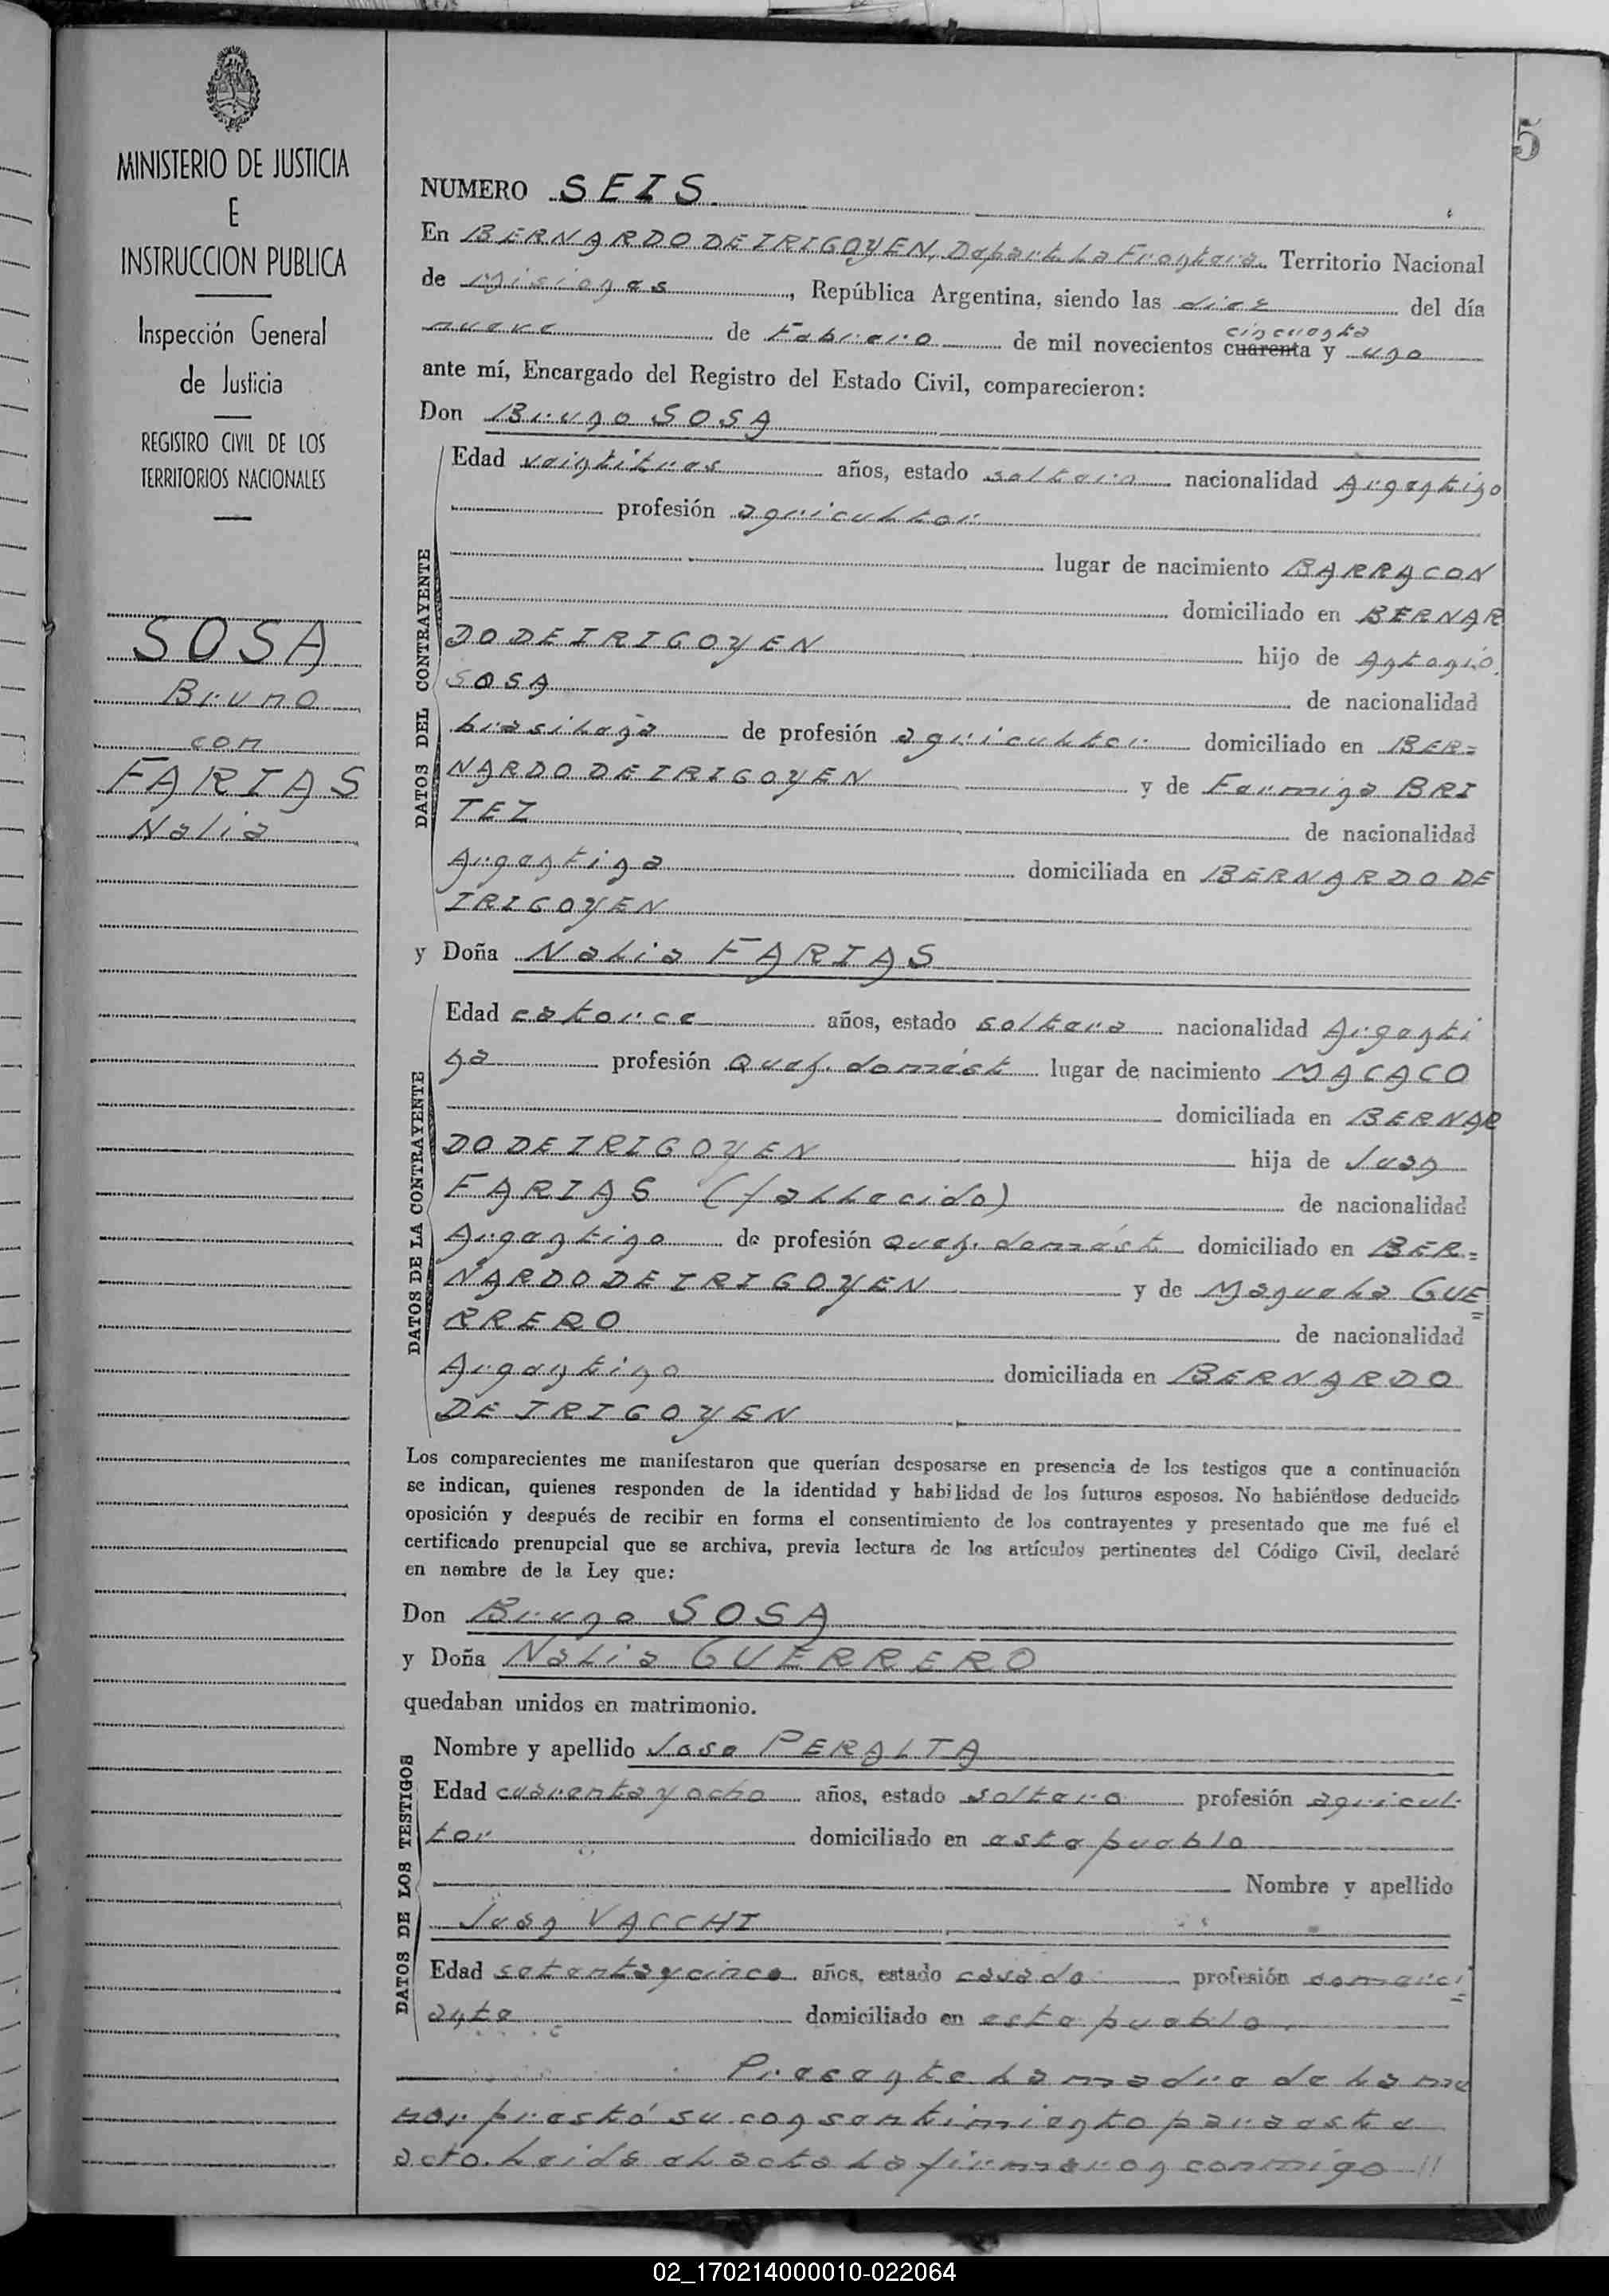 5
MINISTERIO DE JUSTICIA
E
INSTRUCCION PUBLICA
Inspección General
de Justicia
REGISTRO CIVIL DE LOS
TERRITORIOS NACIONALES
SOSA
Bruno
con
FARIAS
Nalia
NUMERO SEIS
En BERNARDO DE IRIGOYEN, Depart. La Frontera. Territorio Nacional
de Misiones, República Argentina, siendo las diez del día
cincuenta
nueve de Febrero de mil novecientos cuarenta y uno
ante mí, Encargado del Registro del Estado Civil, comparecieron:
Don Bruno SOSA
DATOS DEL CONTRAYENTE
Edad veintitres años, estado soltero nacionalidad Argentino
profesión agricultor
lugar de nacimiento BARRACON
domiciliado en BERNAR
DO DE IRIGOYEN hijo de Antonio
SOSA de nacionalidad
brasileña de profesión agricultor domiciliado en BER=
NARDO DE IRIGOYEN y de Fermina BRI
TEZ de nacionalidad
Argentina domiciliada en BERNARDO DE
IRIGOYEN
y Doña Nalia FARIAS
DATOS DE LA CONTRAYENTE
Edad catorce años, estado soltera nacionalidad Argenti
na profesión Queh. domést lugar de nacimiento MACACO
domiciliada en BERNAR
DO DE IRIGOYEN hija de Juan
FARIAS (fallecido) de nacionalidad
Argentino de profesión Queh. domést domiciliado en BER=
NARDO DE IRIGOYEN y de Manuela GUE=
RRERO de nacionalidad
Argentino domiciliada en BERNARDO
DE IRIGOYEN
Los comparecientes me manifestaron que querían desposarse en presencia de los testigos que a continuación
se indican, quienes responden de la identidad y habilidad de los futuros esposos. No habiéndose deducido
oposición y después de recibir en forma el consentimiento de los contrayentes y presentado que me fué el
certificado prenupcial que se archiva, previa lectura de los artículos pertinentes del Código Civil, declaré
en nombre de la Ley que:
Don Bruno SOSA
y Doña Nalia GUERRERO
quedaban unidos en matrimonio.
DATOS DE LOS TESTIGOS
Nombre y apellido Jose PERALTA
Edad cuarenta y ocho años, estado soltero profesión agricul-
tor domiciliado en este pueblo
Nombre y apellido
Juan VACCHI
Edad setenta y cinco años, estado casado profesión comerci=
ante domiciliado en este pueblo.
Presente la madre de la me
nor prestó su consentimiento para este
acto. Leida el acta la firmaron conmigo //
02_170214000010-022064